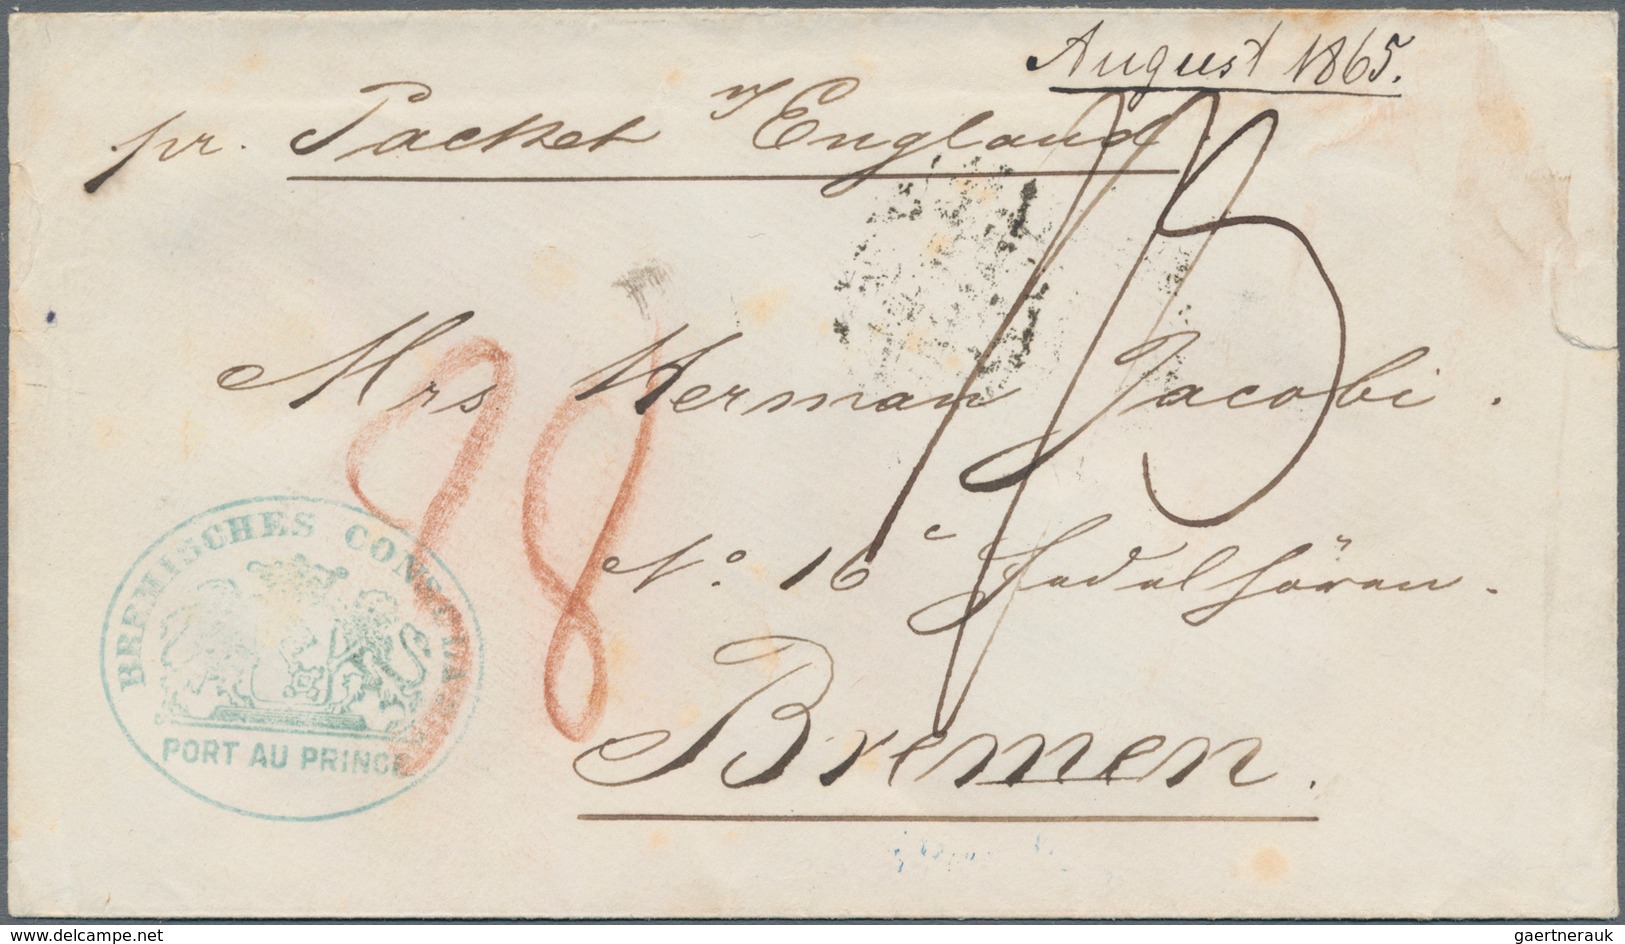 August 1865.
pr. Packet v/ England.
Mrs Herman Jacobi.
No. 16 c Fedelhören.
Bremen.
98
15
BREMISCHES CONSULAT
PORT AU PRINCE
www.delcampe.net
gaertnerauk